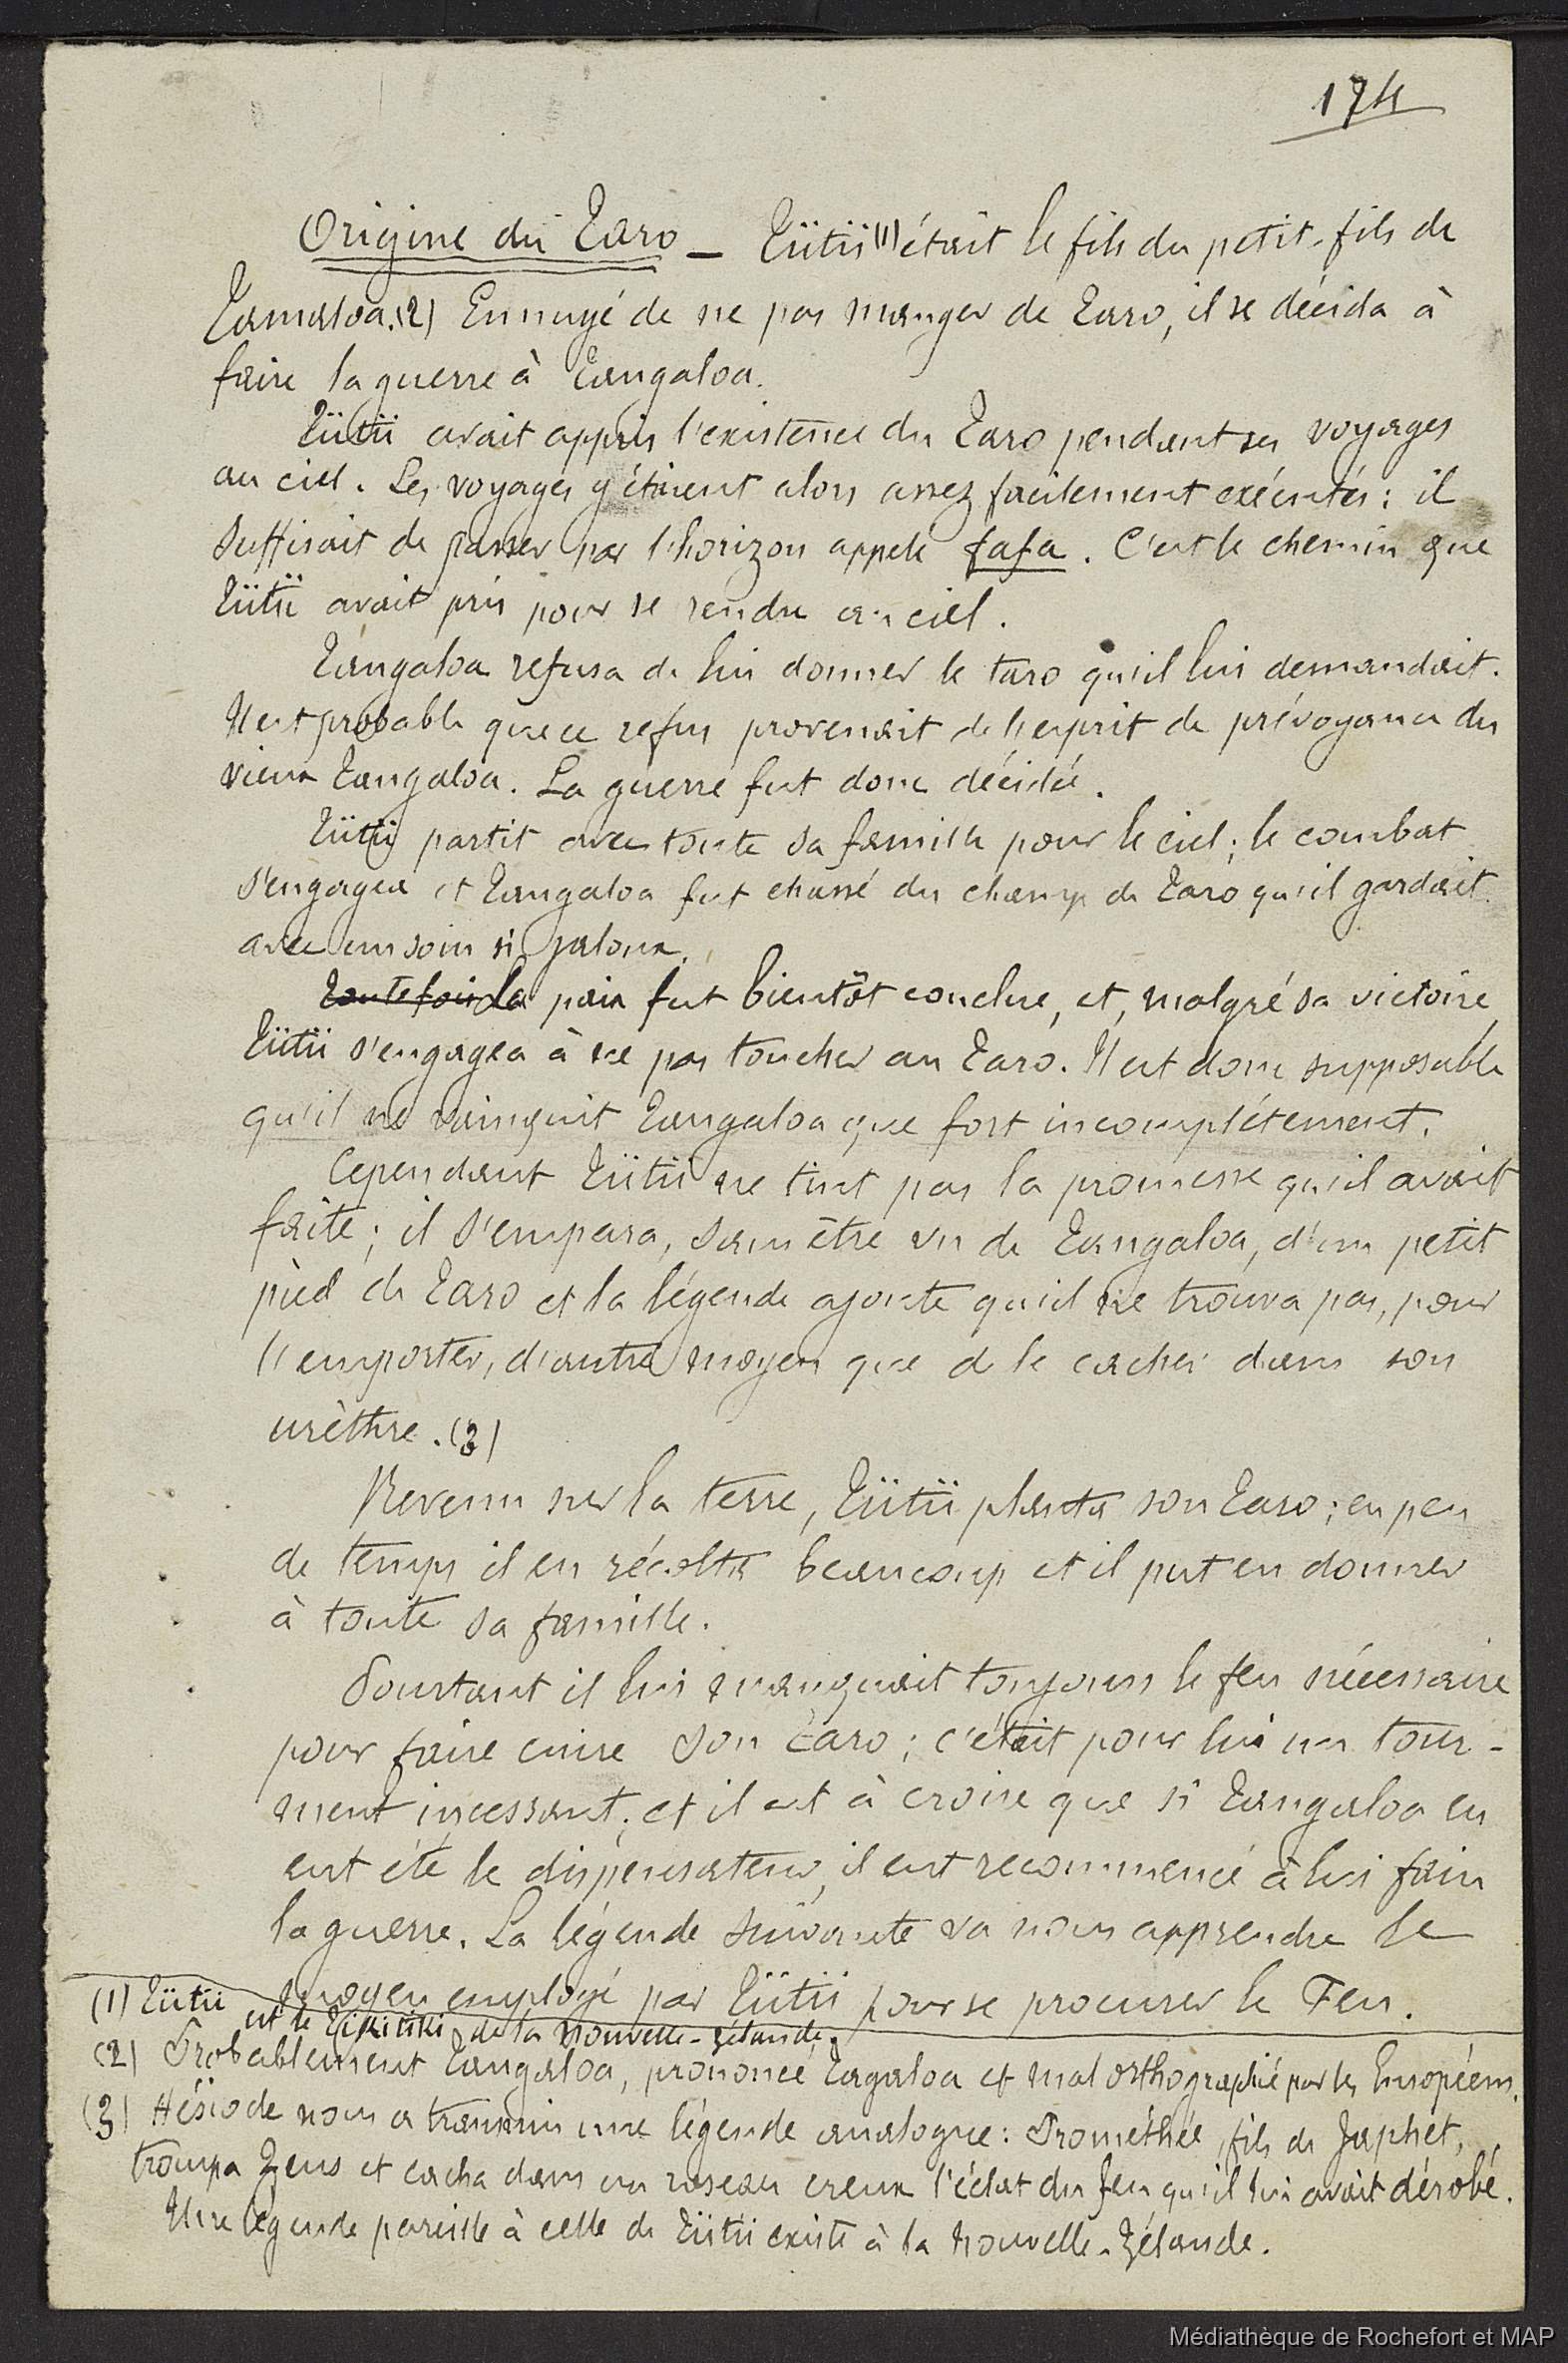 174
Origine du Taro — Tiitii (1) était le fils du petit-fils de
Tamaloa.(2) Ennuyé de ne pas manger de Taro, il se décida à
faire la guerre à Tangaloa.
Tiitii avait appris l'existence du Taro pendant ses voyages
au ciel. Les voyages y étaient alors assez facilement exécutés : il
suffisait de passer par l'horizon appelé fafa. C'est le chemin que
Tiitii avait pris pour se rendre au ciel.
Tangaloa refusa de lui donner le taro qu'il lui demandait.
Il est probable que ce refus provenait de l'esprit de prévoyance du
vieux Tangaloa. La guerre fut donc décidée.
Tiitii partit avec toute sa famille pour le ciel ; le combat
s'engagea et Tangaloa fut chassé du champ de Taro qu'il gardait
avec un soin si jaloux.
Toutefois La paix fut bientôt conclue, et, malgré sa victoire
Tiitii s'engagea à ne pas toucher au Taro. Il est donc supposable
qu'il ne vainquit Tangaloa que fort incomplétement.
Cependant Tiitii ne tint pas la promesse qu'il avait
faite ; il s'empara, sans être vu de Tangaloa, d'un petit
pied de Taro et la légende ajoute qu'il ne trouva pas, pour
l'emporter, d'autre moyen que de le cacher dans son
urèthre. (3)
Revenu sur la terre, Tiitii planta son Taro ; en peu
de temps il en récolta beaucoup et il put en donner
à toute sa famille.
Pourtant il lui manquait toujours le feu nécessaire
pour faire cuire son Taro ; c'était pour lui un tour-
ment incessant ; et il est à croire que si Tangaloa en
eut été le dispensateur, il eut recommencé à lui faire
la guerre. La légende suivante va nous apprendre le
moyen employé par Tiitii pour se procurer le Feu.
(1) Tiitii est le Tikitiki de la Nouvelle-Zélande.
(2) Probablement Tangaloa, prononcé Tagaloa et mal orthographié par les Européens.
(3) Hésiode nous a transmis une légende analogue : Prométhée, fils de Japhet,
trompa Zeus et cacha dans un roseau creux l'éclat du feu qu'il lui avait dérobé.
Une légende pareille à celle de Tiitii existe à la Nouvelle-Zélande.
Médiathèque de Rochefort et MAP